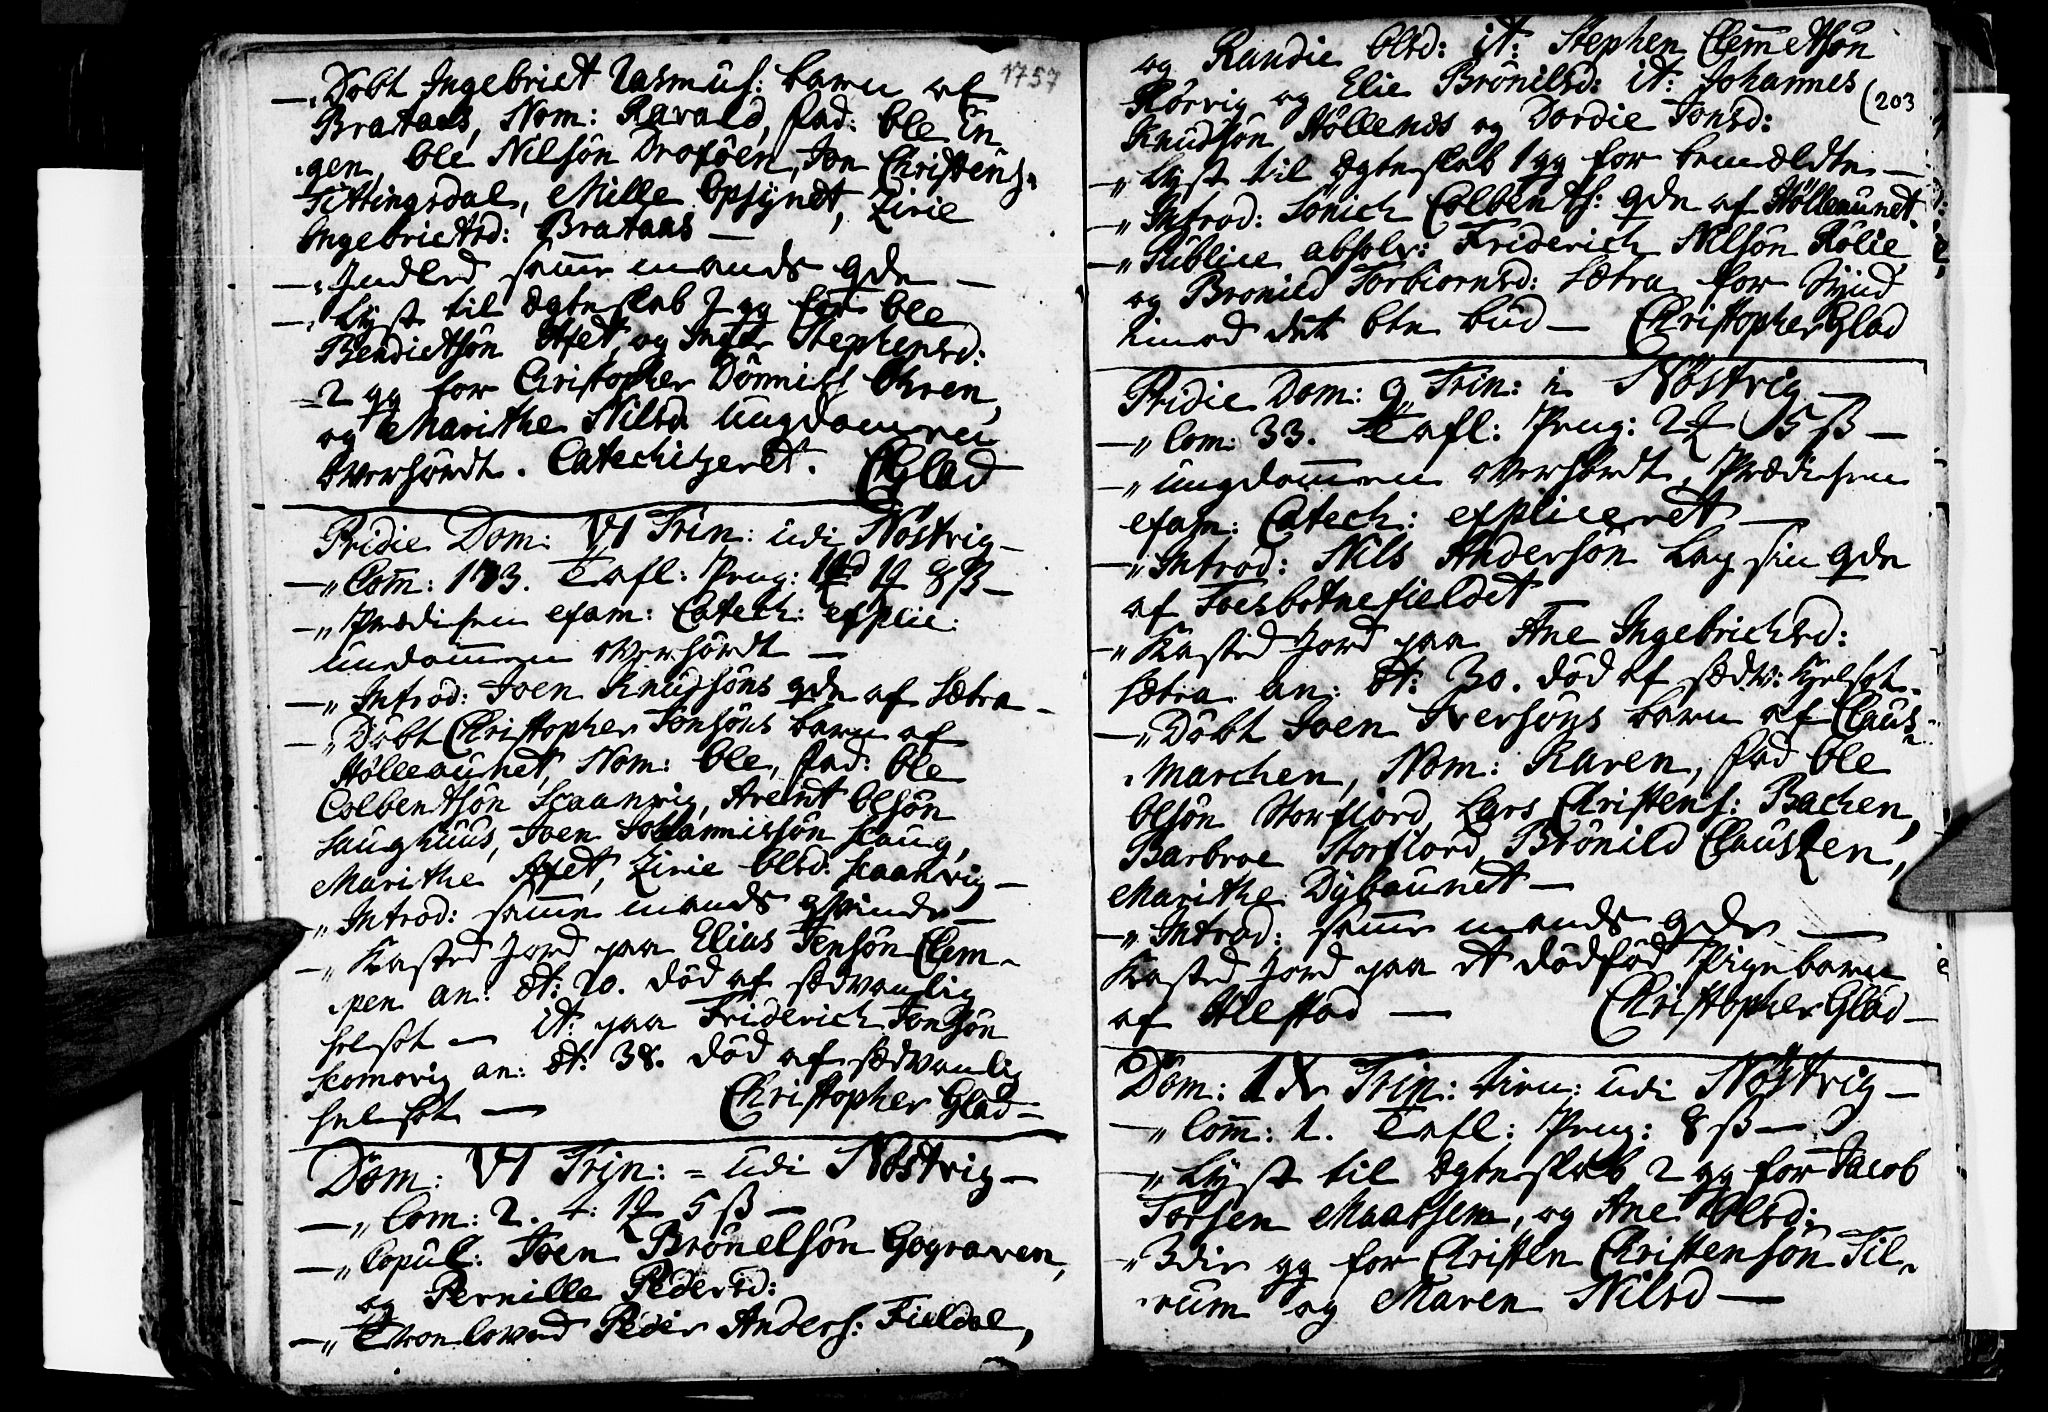 1757
—„ Döbt Ingebrict Rasmus: barn af
Brataas, Nom: Ravald, fad: Ole In-
gen, Ole Nilsön Drosöen, Jon Christens:
Tittingsdal, Mille Opsynet, Zirie
Ingebrictsd: Brataas —
—„ Indled samme mands qde —
—„ Lyst til Ægteskab 3 gg for Ole
Bendictsön Afet og Inger Stephensd:
= 2 gg for Christopher Dönnisl Ohren,
og Marithe Nilsd. Ungdommen
overhördt. Catechizeret. CGlad
Pridie Dom: VI Trin: udi Nöstvig —
—„ Com: 173. Tafl: Peng: 8 ß —
—„ Prædiken exam: Catech: explic:
undommen overhördt —
—„ Introd: Joen Knudsöns qde af Sætra —
—„ Döbt Christopher Jonsöns barn af
Hölleaunet, Nom: Ole, fad: Ole
Colbentsön Scaanvig, Arent Olsön
Haughuus, Joen Johannissön Haug,
Marithe Afet, Zirie Olsd: Scaanvig —
—„ Introd: samme mands qvinde —
—„ Kasted Jord paa Elias Jensön Clem-
pen an: æt: 20. död af sædvanlig
helsot — it: paa Friderich Jonsön
Scomovig an: æt: 38. död af sædvanlig
helsot — Christopher Glad —
Dom: VI Trin: = udi Nöstvig —
—„ Com: 2. t: 5 ß —
—„ Copul: Joen Brönelsön Gograven,
og Pernille Pedersd:
—„ Troelovend Peder Anders: Fieldal,
(203
og Randie Olsd: it: Stephen Clemmetsön
Rörvig og Elie Brönilsd: it: Johannes
Knudsön Höllenes og Dordie Jonsd:
—„ Lyst til Ægteskab 1 gg for bemældte —
—„ Introd: Sönich Colbents: qde af Hölleaunet
—„ Publice absolv: Friderich Nilsön Rölie
og Bronild Torbiornsd: Sætra for Synd
imod det 6te bud — Christopher Glad
Pridie Dom: 9 Trin: i Nöstvig —
—„ Com: 33. Tafl: Peng: 5 ß —
—„ Ungdommen overhördt, Prædiken
exam: Catech: expliceret —
—„ Introd: Nils Andersön Lay sin qde
af Toesbotnefieldet
—„ Kasted Jord paa Ane Ingebrichsd:
Sætra an: æt: 30. död af sædv: helsot.
—„ Döbt Joen Iversöns barn af Claus-
marchen, Nom: Karen, fad Ole
Olsön Storfiord, Lars Christens: Bachen,
Barbroe Storfiord, Brönild Clausken,
Marithe Dybaunet —
—„ Introd: samme mands qde —
Kasted Jord paa et dödföd Pigebarn
af Alestad — Christopher Glad —
Dom: Trin: udi Nöstvig —
—„ Com: 1. Tafl: Peng: 8 ß —
—„ Lyst til Ægteskab 2 gg for Jacob
Torsen Maatsem, og Ane Olsd:
—„ 3die gg for Christen Christensön Til-
rum og Maren Nilsd —